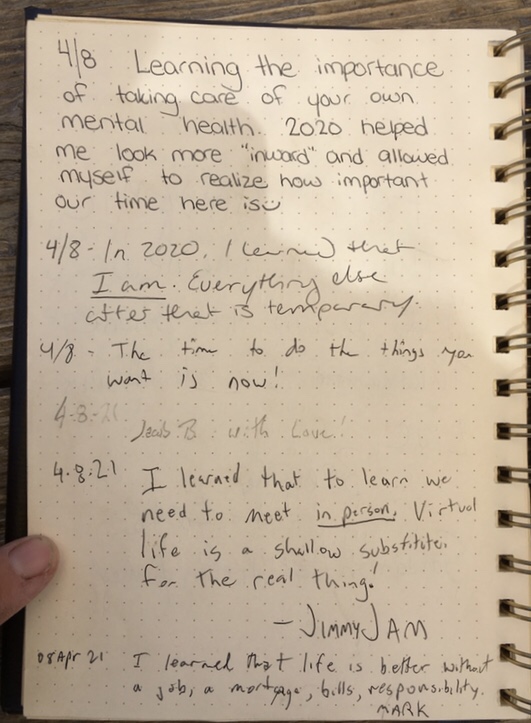 4/8 Learning the importance
of taking care of your own
mental health. 2020 helped
me look more "inward" and allowed
myself to realize how important
our time here is
4/8 - In 2020, I learned that
I am. Everything else
after that is temporary.
4/8 - The time to do the things you
want is now!
4-8-21
B. with Love!
4.8.21 I learned that to learn we
need to meet in person. Virtual
life is a shallow substitute
for the real thing!
- JIMMY JAM
08 Apr 21 I learned that life is better without
a job, a mortgage, bills, responsibility.
MARK